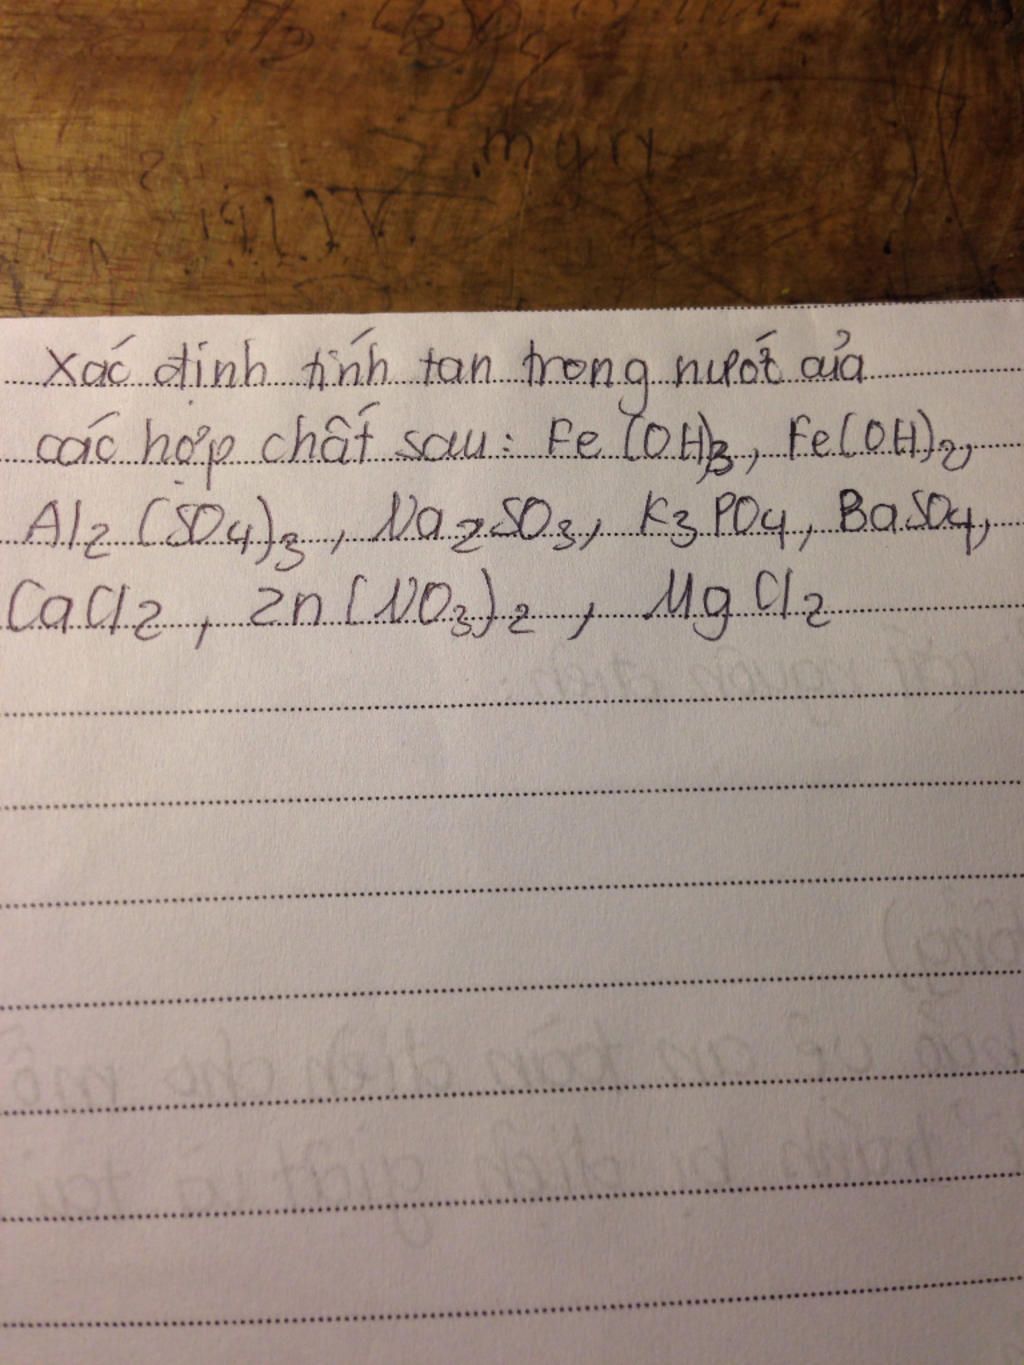 Xác định tính tan trong nước của
các hợp chất sau: Fe(OH)3, Fe(OH)2,
Al2(SO4)3, Na2SO3, K3PO4, BaSO4,
CaCl2, Zn(NO3)2, MgCl2